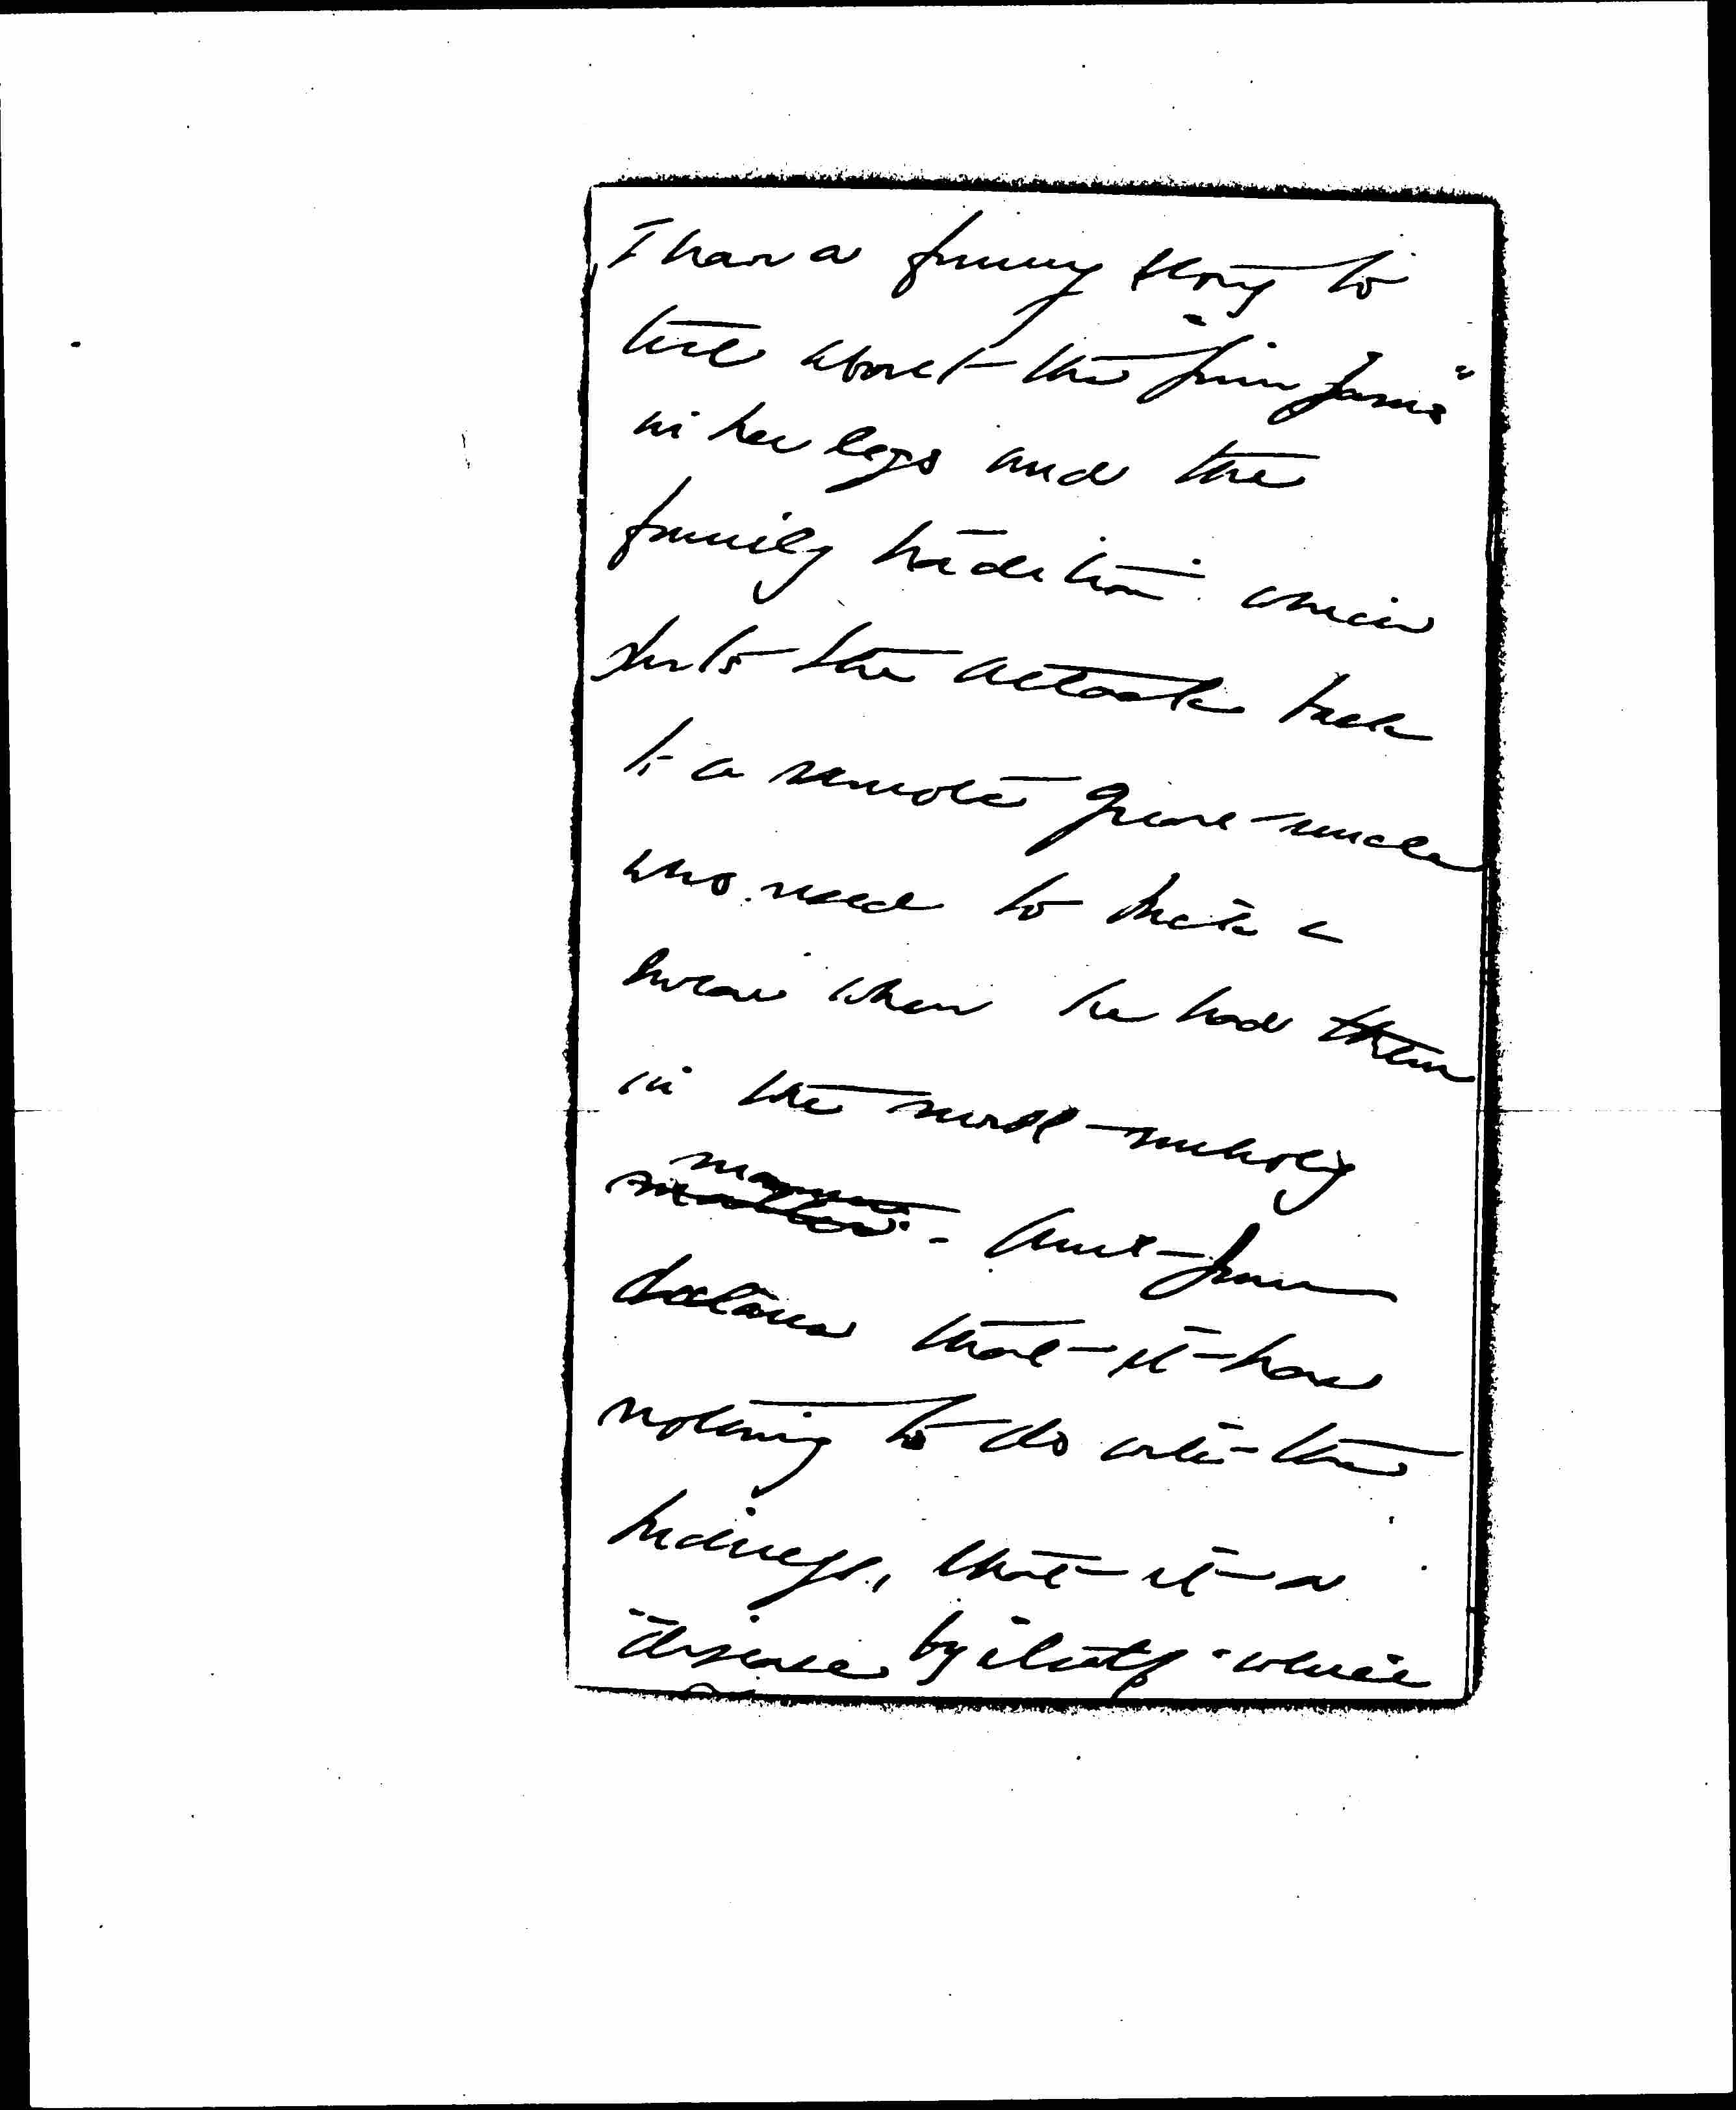 I have a funny story to
tell about the "jim jams"
in her legs and the
family tradition which
the attack back
to a remote great-uncle
who used to kick a
when he had them
in the most unholy
manner
matter. - Aunt Jane
declares that it has
nothing to do with the
kidneys, that it a
"disease by itself" which